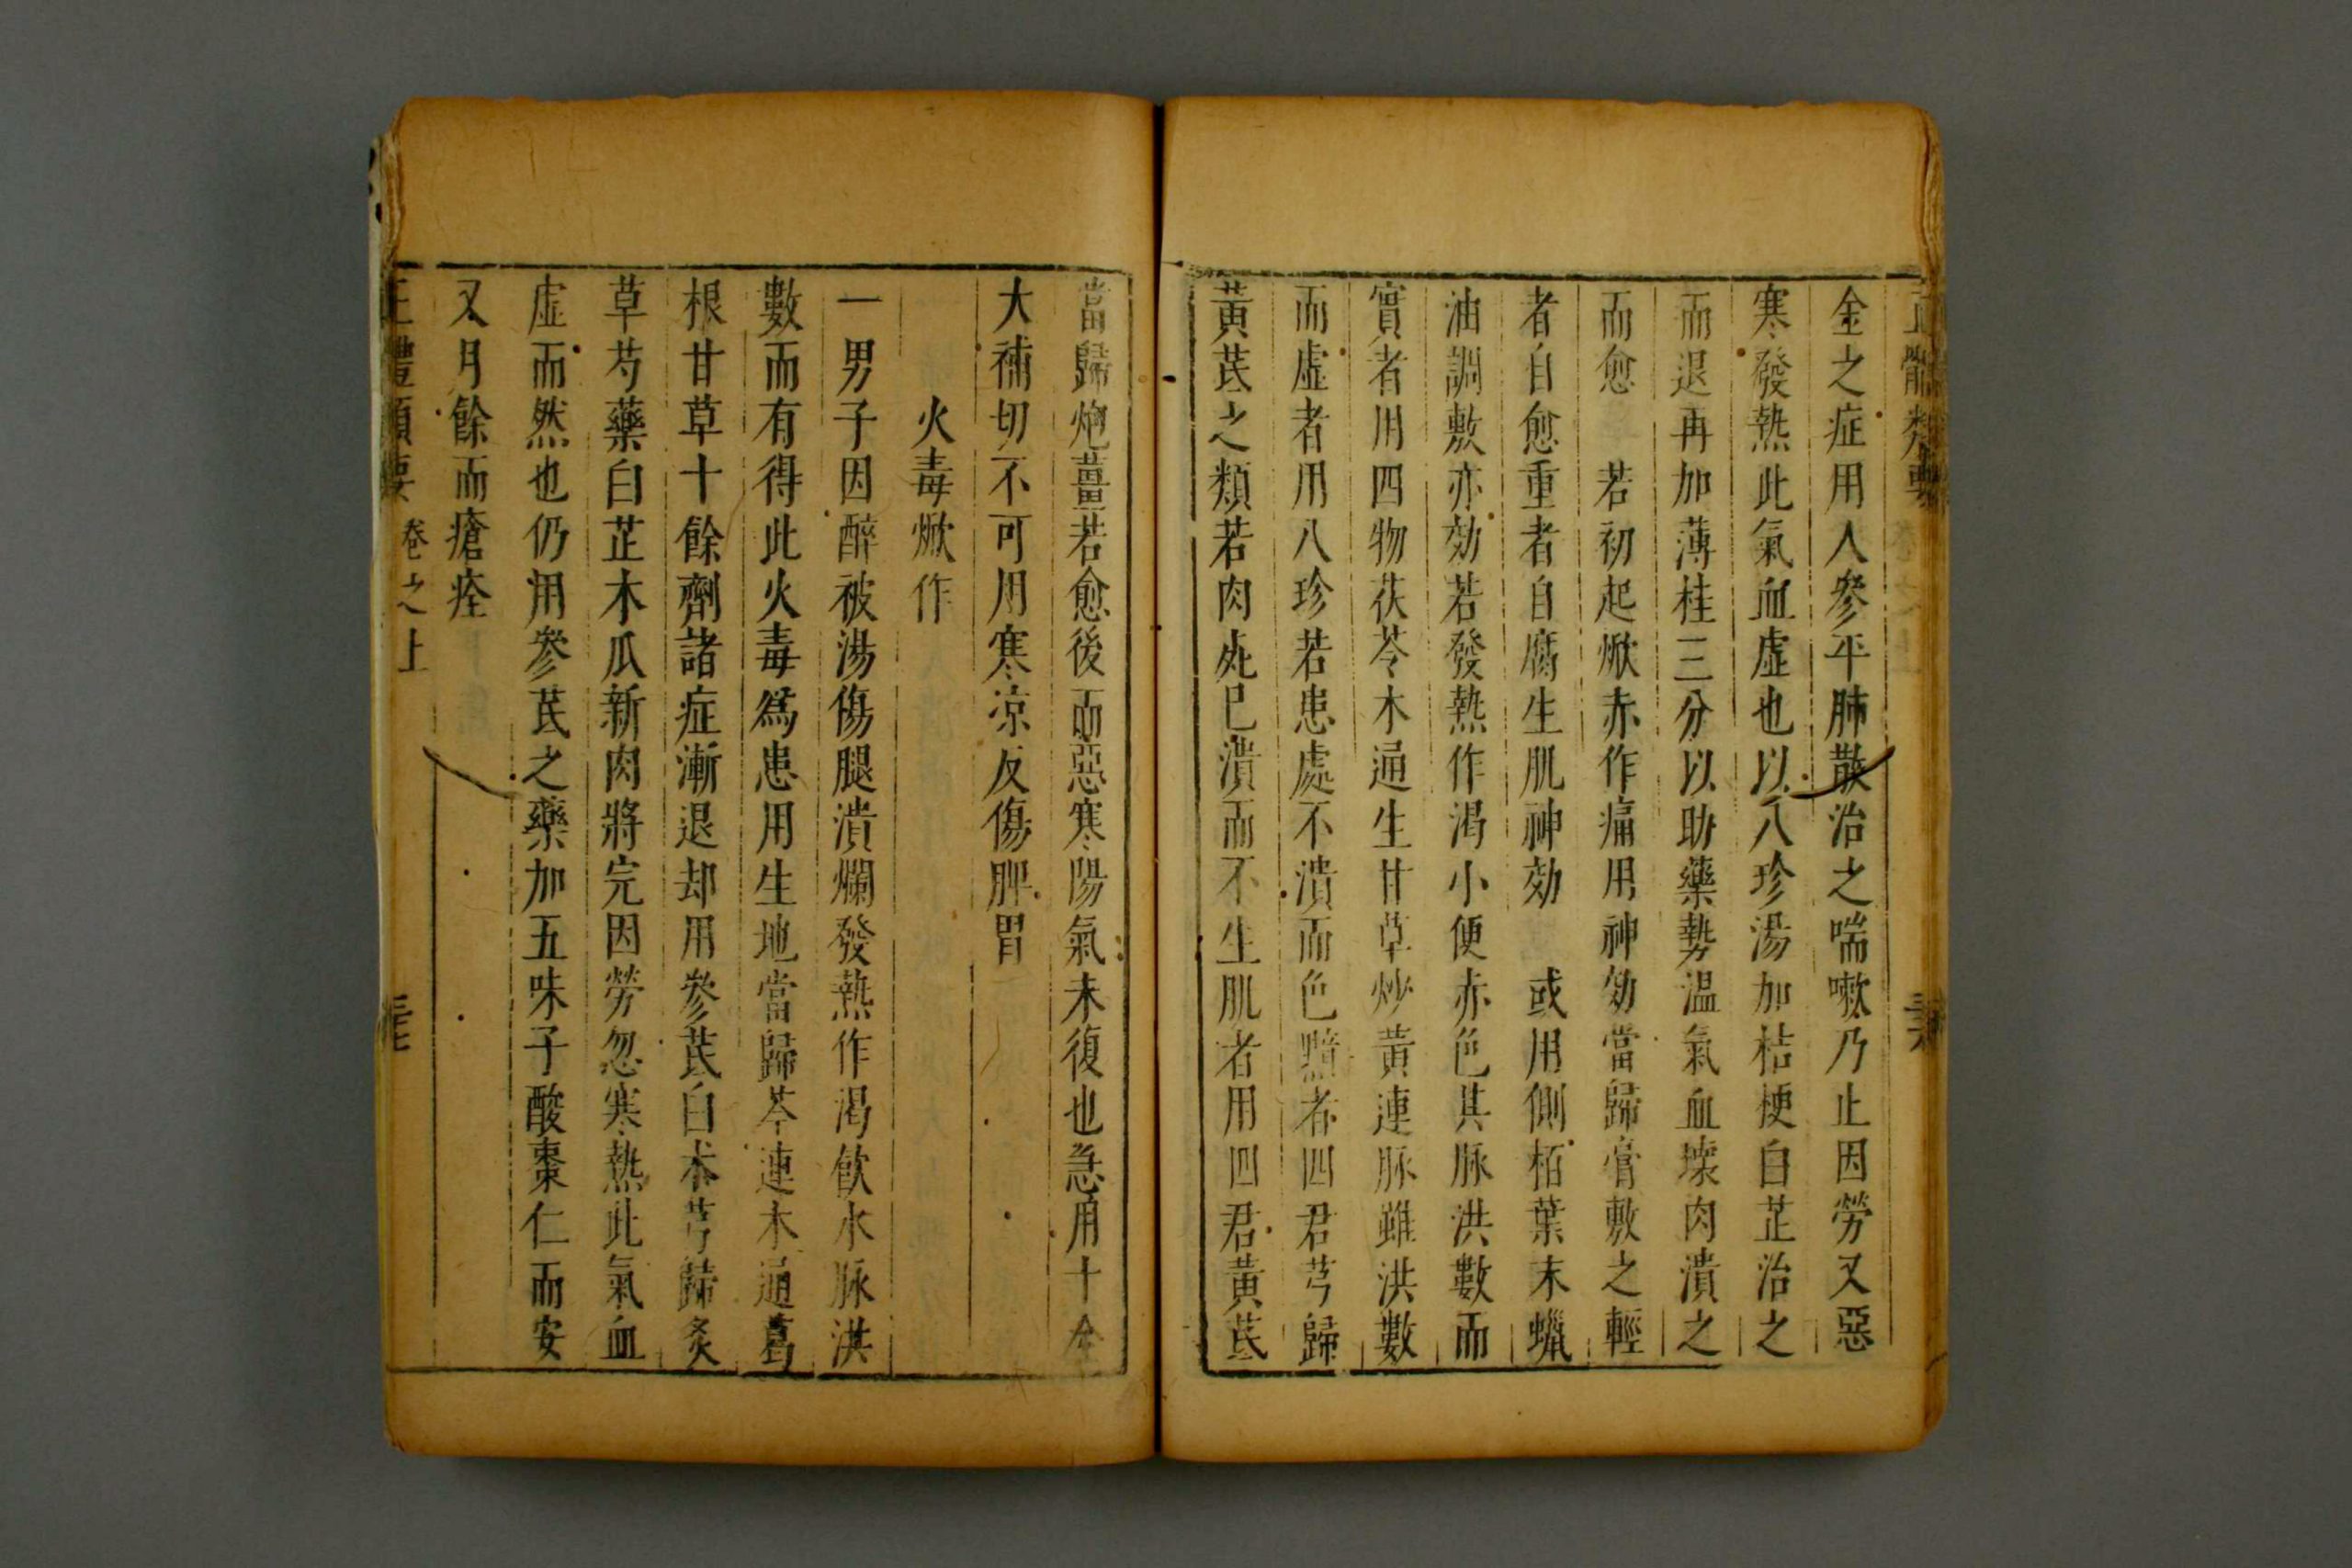 正體類要 卷之上 三六
金之症用人參平肺散治之喘嗽乃止因勞又惡
寒發熱此氣血虛也以八珍湯加桔梗白芷治之
而退再加薄桂三分以助藥勢温氣血壞肉潰之
而愈 若初起焮赤作痛用神効當歸膏敷之輕
者自愈重者自腐生肌神効 或用側栢葉末蠟
油調敷亦効若發熱作渴小便赤色其脉洪數而
實者用四物茯苓木通生甘草炒黃連脉雖洪數
而虛者用八珍若患處不潰而色黯者四君芎歸
黃芪之類若肉死已潰而不生肌者用四君黃芪
當歸炮薑若愈後而惡寒陽氣未復也急用十全
大補切不可用寒凉反傷脾胃
火毒焮作
一男子因醉被湯傷腿潰爛發熱作渴飲水脉洪
數而有得此火毒爲患用生地當歸芩連木通葛
根甘草十餘劑諸症漸退却用參芪白朮芎歸炙
草芍藥白芷木瓜新肉將完因勞忽寒熱此氣血
虛而然也仍用參芪之藥加五味子酸棗仁而安
又月餘而瘡痊
正體類要 卷之上 三七